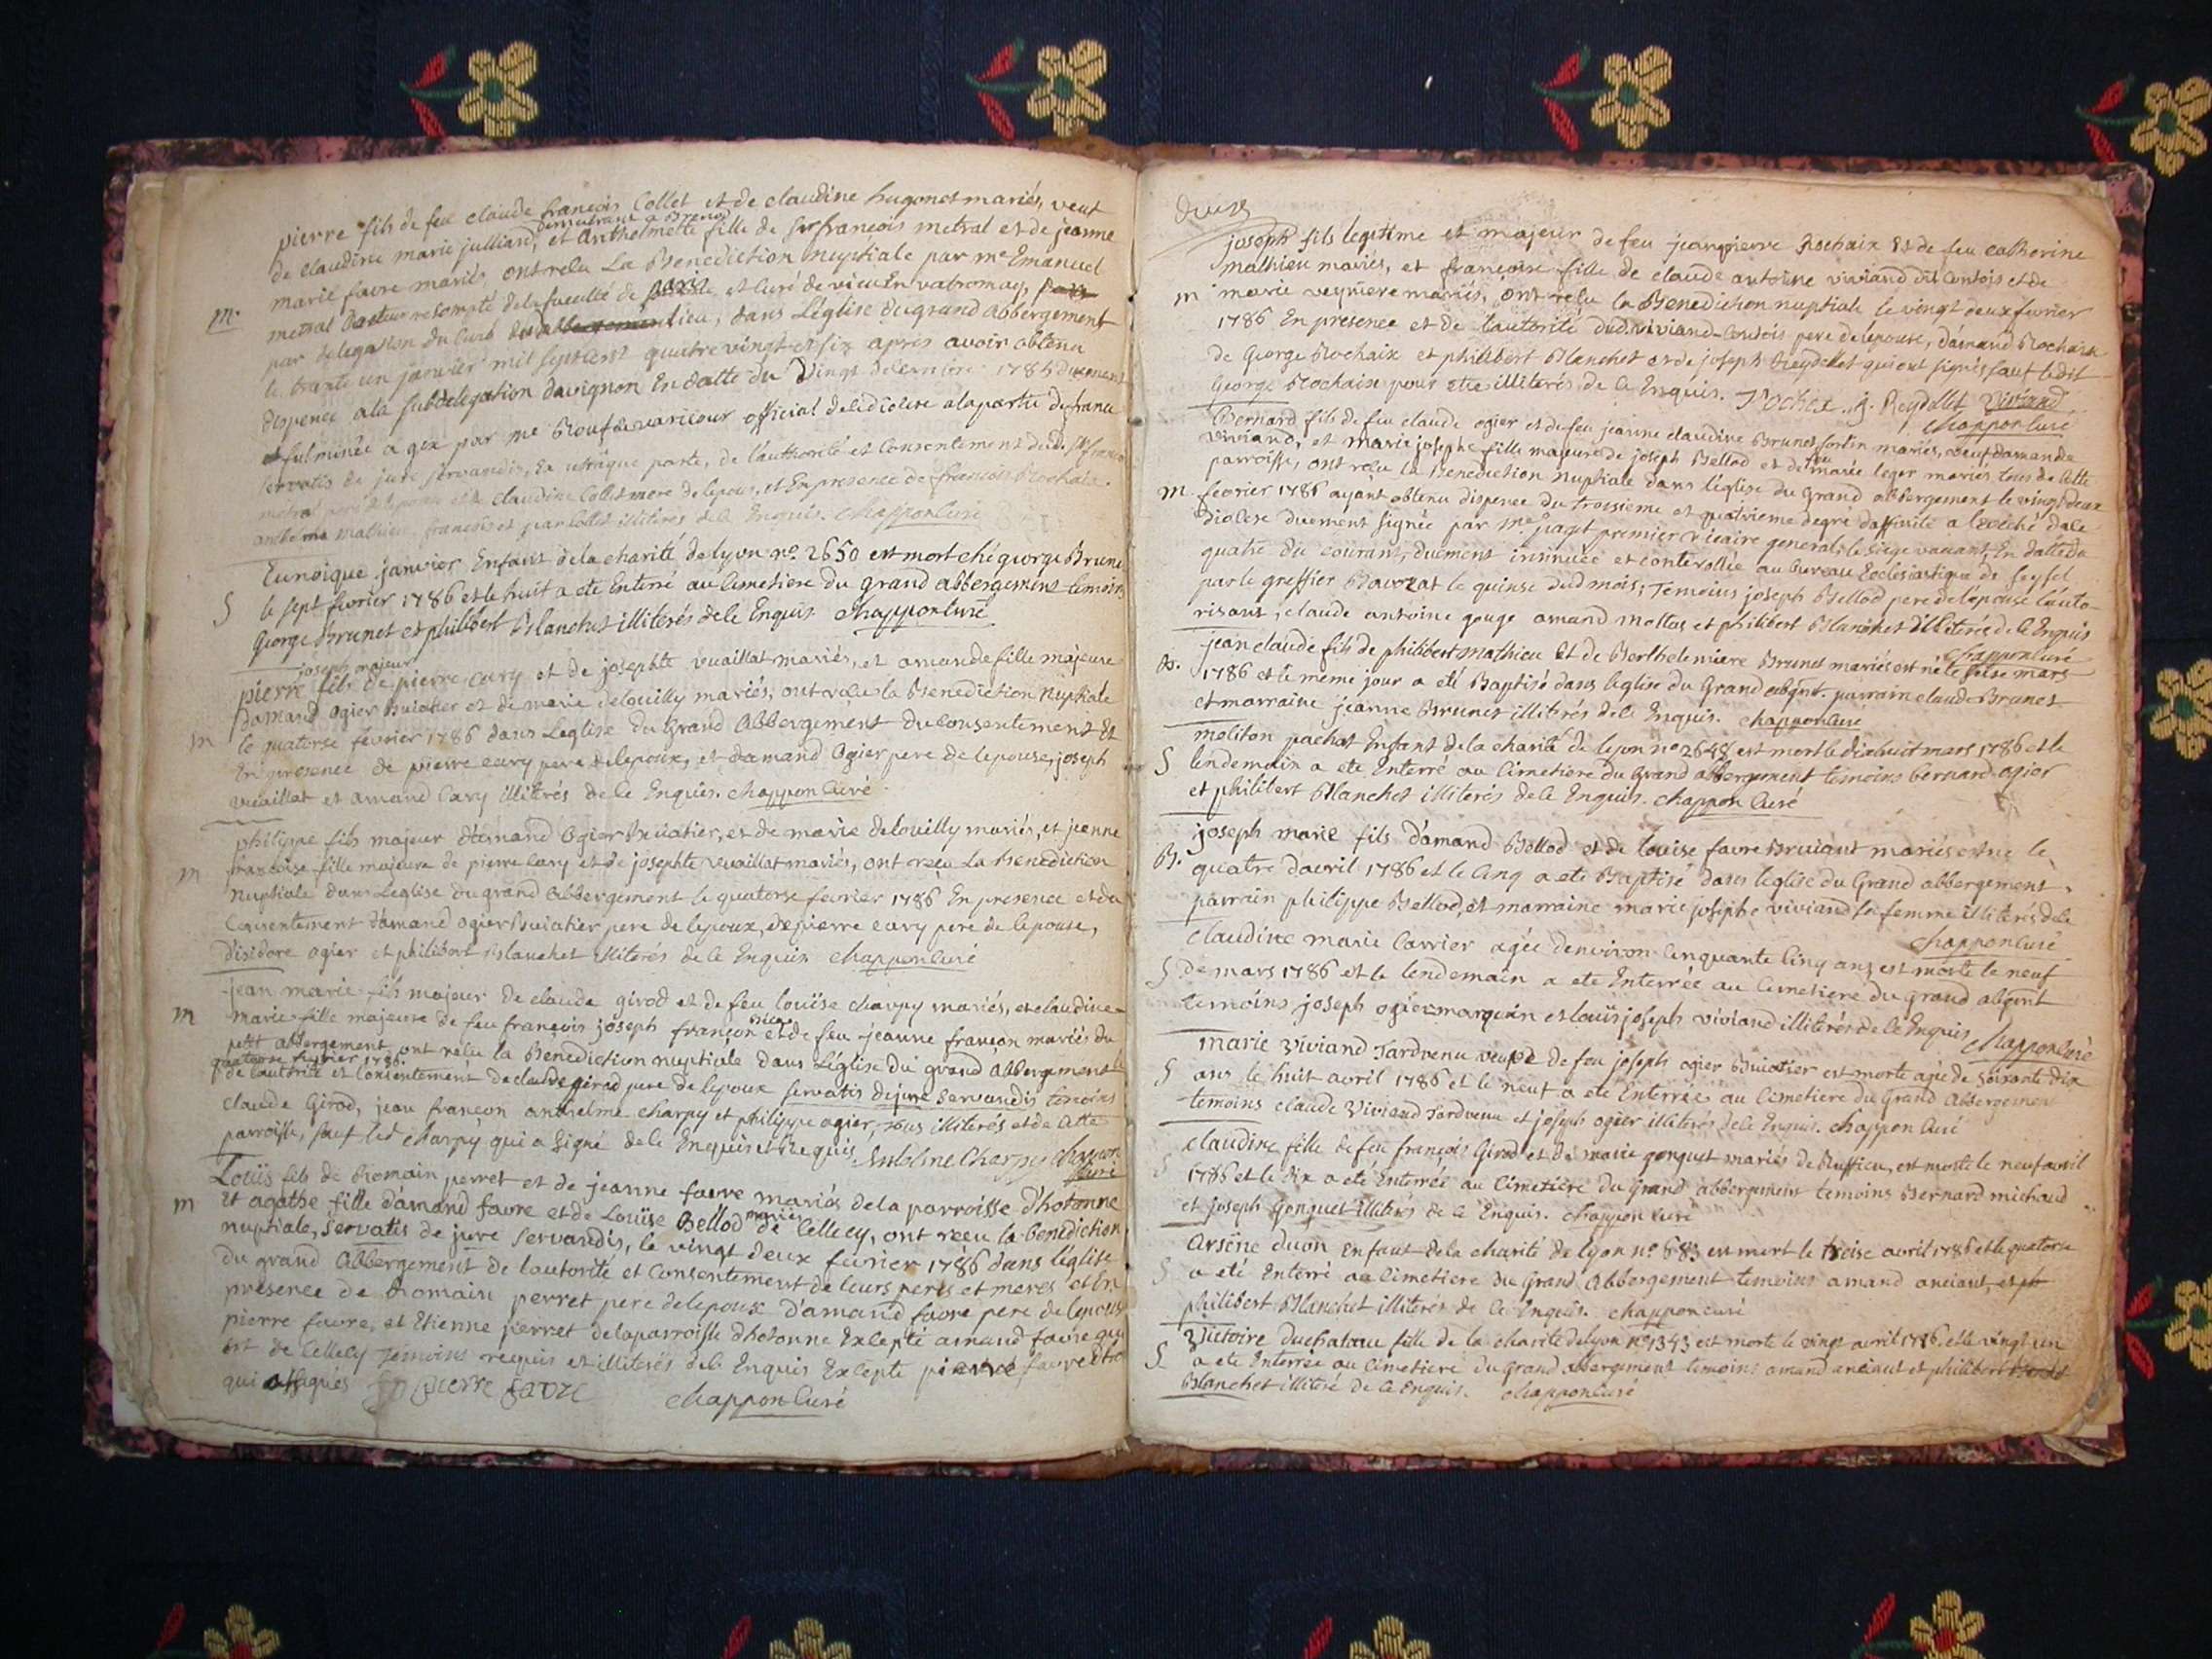 pierre fils de feu claude françois Collet et de claudine hugonet mariés, veuf
demeurant a Brenod
de claudine marie julliand, et Anthelmette fille de Sr françois metral et de jeanne
marie favre mariés ont reçu La Benediction nuptiale par me Emanuel
m. metral Docteur de la faculté de paris et curé de vieu En valromay,
par delegation du Curé du lieu, dans L'église du grand Abbergement
le trante un janvier mil sept cent quatre vingt et six après avoir obtenu
dispence a la subdelegation d'avignon En datte du Vingt 1785 duement
fulminée a gex par me Rouf de varicour official de le diocese a la partie de france
servatis de jure servandis, Ex utraque parte, de l'authorité et Consentement dud. Sr françois
metral pere de l'epouse et de claudine Collet mere de lepoux, et En presence de françois Rochaix
anthelme Mathieu, françois et jean Collet illiterés de ce Enquis. chappon Curé
janvier Enfant de la charité de lyon no. 2650 est mort ché george Brunet
S le sept fevrier 1786 et le huit a ete Enterré au Cimetiere du grand abbergement temoins
George Brunet et philibert Blanchet illiterés de ce Enquis chappon curé
joseph majeur
pierre fils de pierre Cary et de josephte vuaillat mariés, et amande fille majeure
d'amand ogier Buiatier et de marie delouilly mariés, ont reçu la Benediction Nuptiale
m le quatorse fevrier 1786 dans Leglise du Grand Abbergement du Consentement Et
En presence de pierre cary pere de lepoux, et d'amand Ogier pere de lepouse, joseph
vuaillat et amand Cary illiterés de ce Enquis. chappon Curé
philippe fils majeur d'Amand Ogier Buiatier, et de marie delouilly mariés, et jeanne
m françoise fille majeure de pierre Cary et de josephte vuaillat mariés, ont reçu La Benediction
Nuptiale dans Leglise du grand Abbergement le quatorse fevrier 1786 En presence et du
Consentement d'amand ogier Buiatier pere de lepoux, de pierre cary pere de lepouse,
d'isidore ogier et philibert Blanchet illiterés de ce Enquis chappon Curé
jean marie fils majeur de claude girod et de feu louise charpy mariés, et claudine
m marie fille majeure de feu françois joseph françon et de feu jeanne françon mariés du
petit abbergement, ont reçu la Benediction nuptiale dans L'église du grand Abbergement le
quatorse fevrier 1786.
de lautorité et Consentement de claude girod pere de lepoux servatis de jure servandis temoins
Claude Girod, jean françon anthelme charpy et philippe ogier, tous illiterés et de cette
parroisse, sauf led charpy qui a signé de ce Enquis et Requis Antelme Charpy chappon
Curé
Loüis fils de Romain perret et de jeanne favre mariés de la parroisse d'hotonne
m Et agathe fille d'amand favre et de Loüise Bellod mariés de Cellecy, ont recu la benediction
nuptiale, servatis de jure servandis, le vingt deux fevrier 1786 dans l'église
du grand Abbergement de lautorité et Consentement de leurs peres et meres et En
presence de Romain perret pere de lepoux d'amand favre pere de lepouse
pierre favre, et Etienne perret de la parroisse d'hotonne Excepté amand favre qui
est de Cellecy temoins requis et illiterés de ce Enquis Excepté pierre favre
qui a signés pierre favre chappon Curé
deux
joseph fils legitime et majeur de feu jean pierre Rochaix et de feu catherine
mathieu mariés, et françoise fille de claude antoine viviand dit Contois et de
m marie veyriere mariés, ont reçu la Benediction nuptiale le vingt deux fevrier
1786 En presence et de l'autorité dud. viviand Contois pere de l'epouse, d'amand Rochaix
de George Rochaix et philibert Blanchet et de joseph Reydellet qui ont signés sauf ledit
George Rochaix pour etre illiterés de ce Enquis. Rochex J. Reydellet Viviand
chappon curé
Bernard fils de feu claude ogier et de feu jeanne claudine Brunet fortin mariés, veuf d'amande
viviand, et marie josephe fille majeure de joseph Bellod et de feu marie leger mariés tous de Cette
parroisse, ont reçu la Benediction nuptiale dans l'église du Grand abbergement le vingt deux
m. fevrier 1786 ayant obtenu dispence du troisieme et quatrieme degré d'affinité a l'evêché dale
diocese duement signée par me paget premier vicaire general, le siege vacant, En datte du
quatre du courant, duement insinuée et controllée au bureau Ecclésiastique de seyssel
par le greffier Bauvzat le quinse dud mois; Temoins joseph Bellod pere de lepouse l'auto-
risant, claude antoine gouge amand mollas et philibert Blanchet illiterés de ce Enquis
chappon curé
jean claude fils de philibert mathieu Et de Berthelemiere Brunet mariés est né le seise mars
B. 1786 et le même jour a eté Baptisé dans leglise du Grand abgmt. parrain claude Brunet
et marraine jeanne Brunet illiterés de ce Enquis. chappon curé
moliton pachot Enfant de la charité de lyon no 2648 est mort le dixhuit mars 1786 et le
S lendemain a ete Enterré au Cimetiere du Grand abbergement temoins bernard ogier
et philibert Blanchet illiterés de ce Enquis. chappon Curé
joseph marie fils d'amand Bellod et de louise favre Bruiant mariés est né le
B. quatre d'avril 1786 et le Cinq a ete Baptisé dans leglise du Grand abbergement,
parrain philippe Bellod, et marraine marie josephe viviand sa femme illiterés de ce
chappon curé
Claudine marie Carrier agée d'environ Cinquante Cinq ans est morte le neuf
S de mars 1786 et le lendemain a ete Enterrée au Cimetiere du grand abgmt
temoins joseph ogier marquin et loüis joseph viviand illiterés de ce Enquis chappon Curé
marie Viviand Tardvenu veuve de feu joseph ogier Buiatier est morte agée de soixante dix
S ans le huit avril 1786 et le neuf a ete Enterrée au Cimetiere du Grand Abbergement
temoins claude Viviand Tardvenu et joseph ogier illiterés de ce Enquis. chappon Curé
claudine fille de feu françois Girod et de marie gonguet mariés de Ruffieu, est morte le neuf avril
S 1786 et le dix a eté Enterrée au Cimetiere du Grand abbergement temoins Bernard michaud
et joseph Gonguet illiterés de ce Enquis. chappon curé
Arsêne duon Enfant de la charité de lyon no 683 est mort le treise avril 1786 et le quatorse
S a eté Enterré au Cimetiere du Grand Abbergement temoins amand anciaut, et ph
philibert Blanchet illiterés de ce Enquis. chappon curé
Victoire duchateau fille de la charité de lyon no 1343 est morte le vingt avril 1786. et le vingt un
S a ete Enterrée au Cimetiere du Grand abbergement temoins amand anciaut et philibert
Blanchet illiteré de ce Enquis. chappon curé